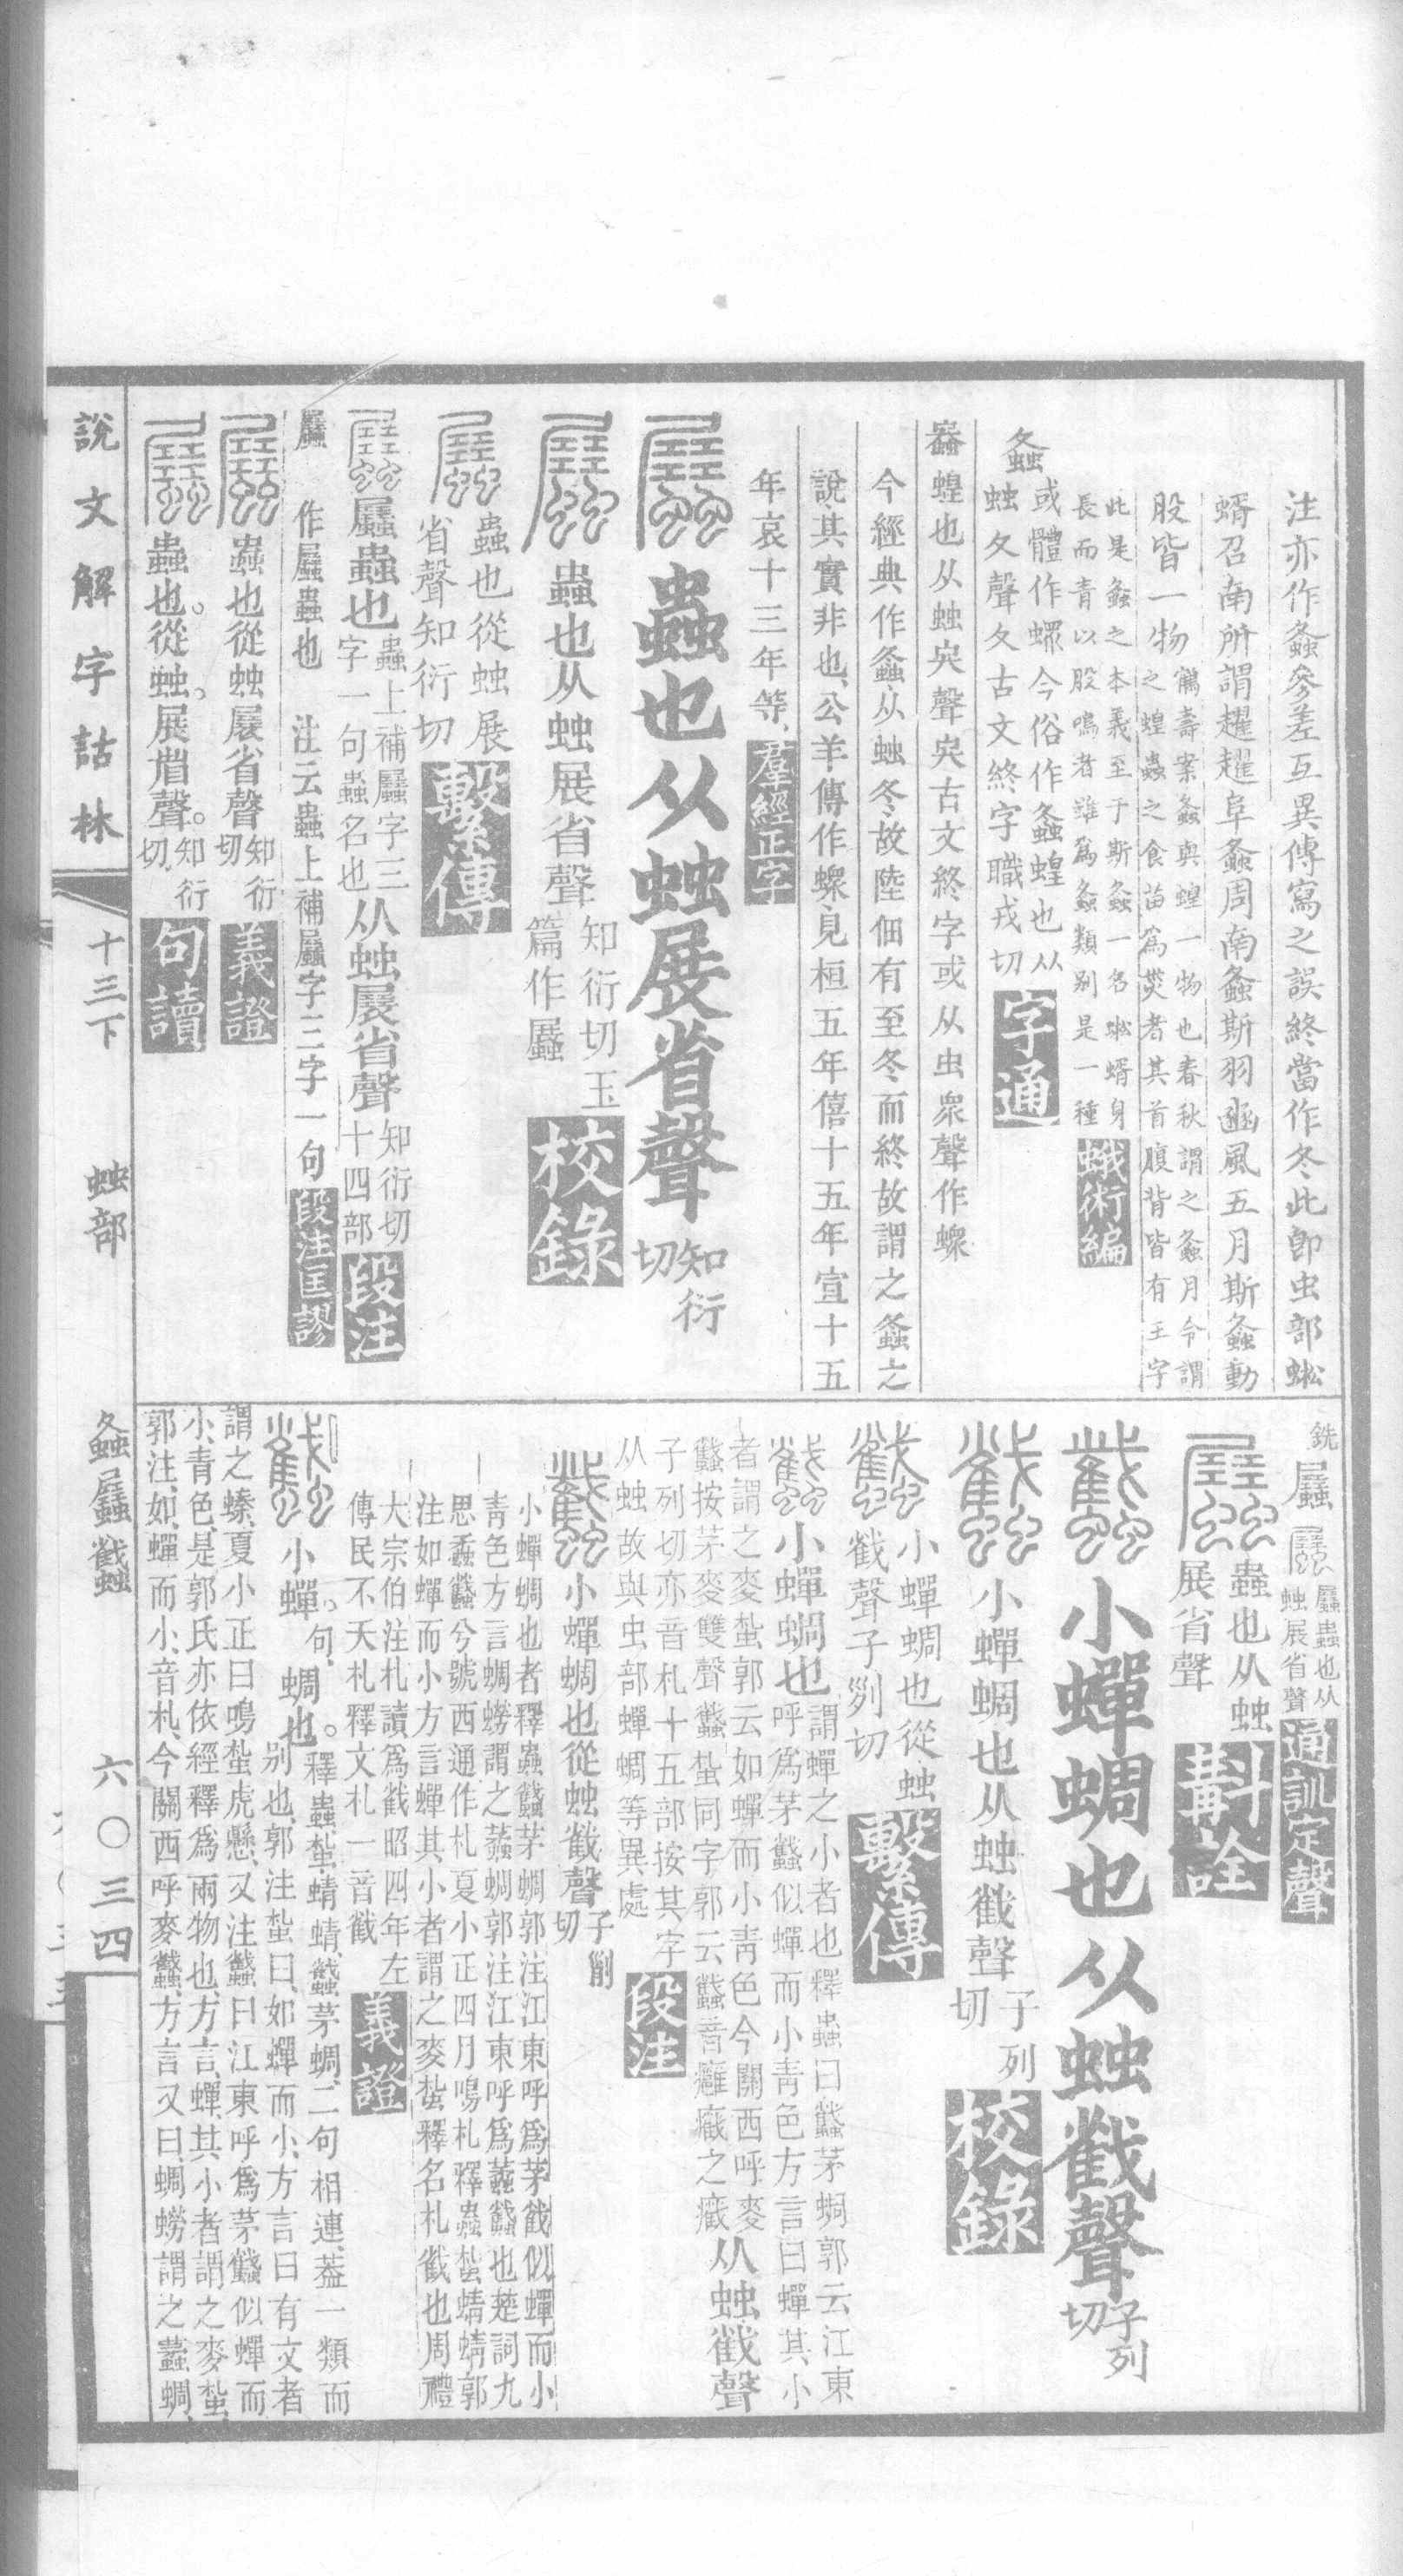 注亦作螽參差互異傳寫之誤終當作冬此卽虫部蜙
蝑召南所謂趯趯阜螽周南螽斯羽豳風五月斯螽動
股皆一物鶴壽案螽與蝗一物也春秋謂之螽月令謂
之蝗蟲之食苗爲烖者其首腹背皆有王字
此是螽之本義至于斯螽一名蜙蝑身
長而青以股鳴者雖爲螽類别是一種 蛾術編
螽或體作螺今俗作螽蝗也从
䖵夂聲夂古文終字職戎切 字通
蝗也从䖵宎聲宎古文終字或从虫眾聲作𧑄
今經典作螽从䖵冬故陸佃有至冬而終故謂之螽之
說其實非也公羊傳作𧑄見桓五年僖十五年宣十五
年哀十三年等 羣經正字
蟲也从䖵展省聲知衍切
蟲也从䖵展省聲知衍切玉
篇作𧓲 校錄
蟲也從䖵展
省聲知衍切 繫傳
蟲也蟲上補字三
字一句蟲名也从䖵展省聲知衍切
十四部 段注
作蟲也 注云蟲上補字三字一句 段注匡謬
蟲也從䖵展省聲知衍切 義證
蟲也。從䖵。展省聲。知衍切 句讀
說文解字詁林 十三下 䖵部 螽 六〇三四
銑 蟲也从
䖵展省聲 通訓定聲
蟲也从䖵
展省聲 斠詮
小蟬蜩也从䖵𢧵聲子列切
小蟬蜩也从䖵𢧵聲子列切 校錄
小蟬蜩也從䖵
𢧵聲子列切 繫傳
小蟬蜩也謂蟬之小者也釋蟲曰茅蜩郭云江東
呼爲茅似蟬而小青色方言曰蟬其小
者謂之麥蚻郭云如蟬而小青色今關西呼麥
按茅麥雙聲蚻同字郭云音癰癤之癤从䖵𢧵聲
子列切亦音札十五部按其字
从䖵故與虫部蟬蜩等異處 段注
小蟬蜩也從䖵𢧵聲子列切
小蟬蜩也者釋蟲茅蜩郭注江東呼爲茅𢧵似蟬而小
青色方言蜩蟧謂之蜩郭注江東呼爲也楚詞九
思兮號西通作札夏小正四月鳴札釋蟲蚻蜻蜻郭
注如蟬而小方言蟬其小者謂之麥蚻釋名札𢧵也周禮
大宗伯注札讀爲𢧵昭四年左
傳民不夭札釋文札一音𢧵 義證
小蟬。句。蜩也。釋蟲蚻蜻蜻茅蜩二句相連蓋一類而
别也郭注蚻曰如蟬而小方言曰有文者
謂之螓夏小正曰鳴蚻虎懸又注曰江東呼爲茅似蟬而
小青色是郭氏亦依經釋爲兩物也方言蟬其小者謂之麥蚻
郭注如蟬而小音札今關西呼麥方言又曰蜩蟧謂之蜩